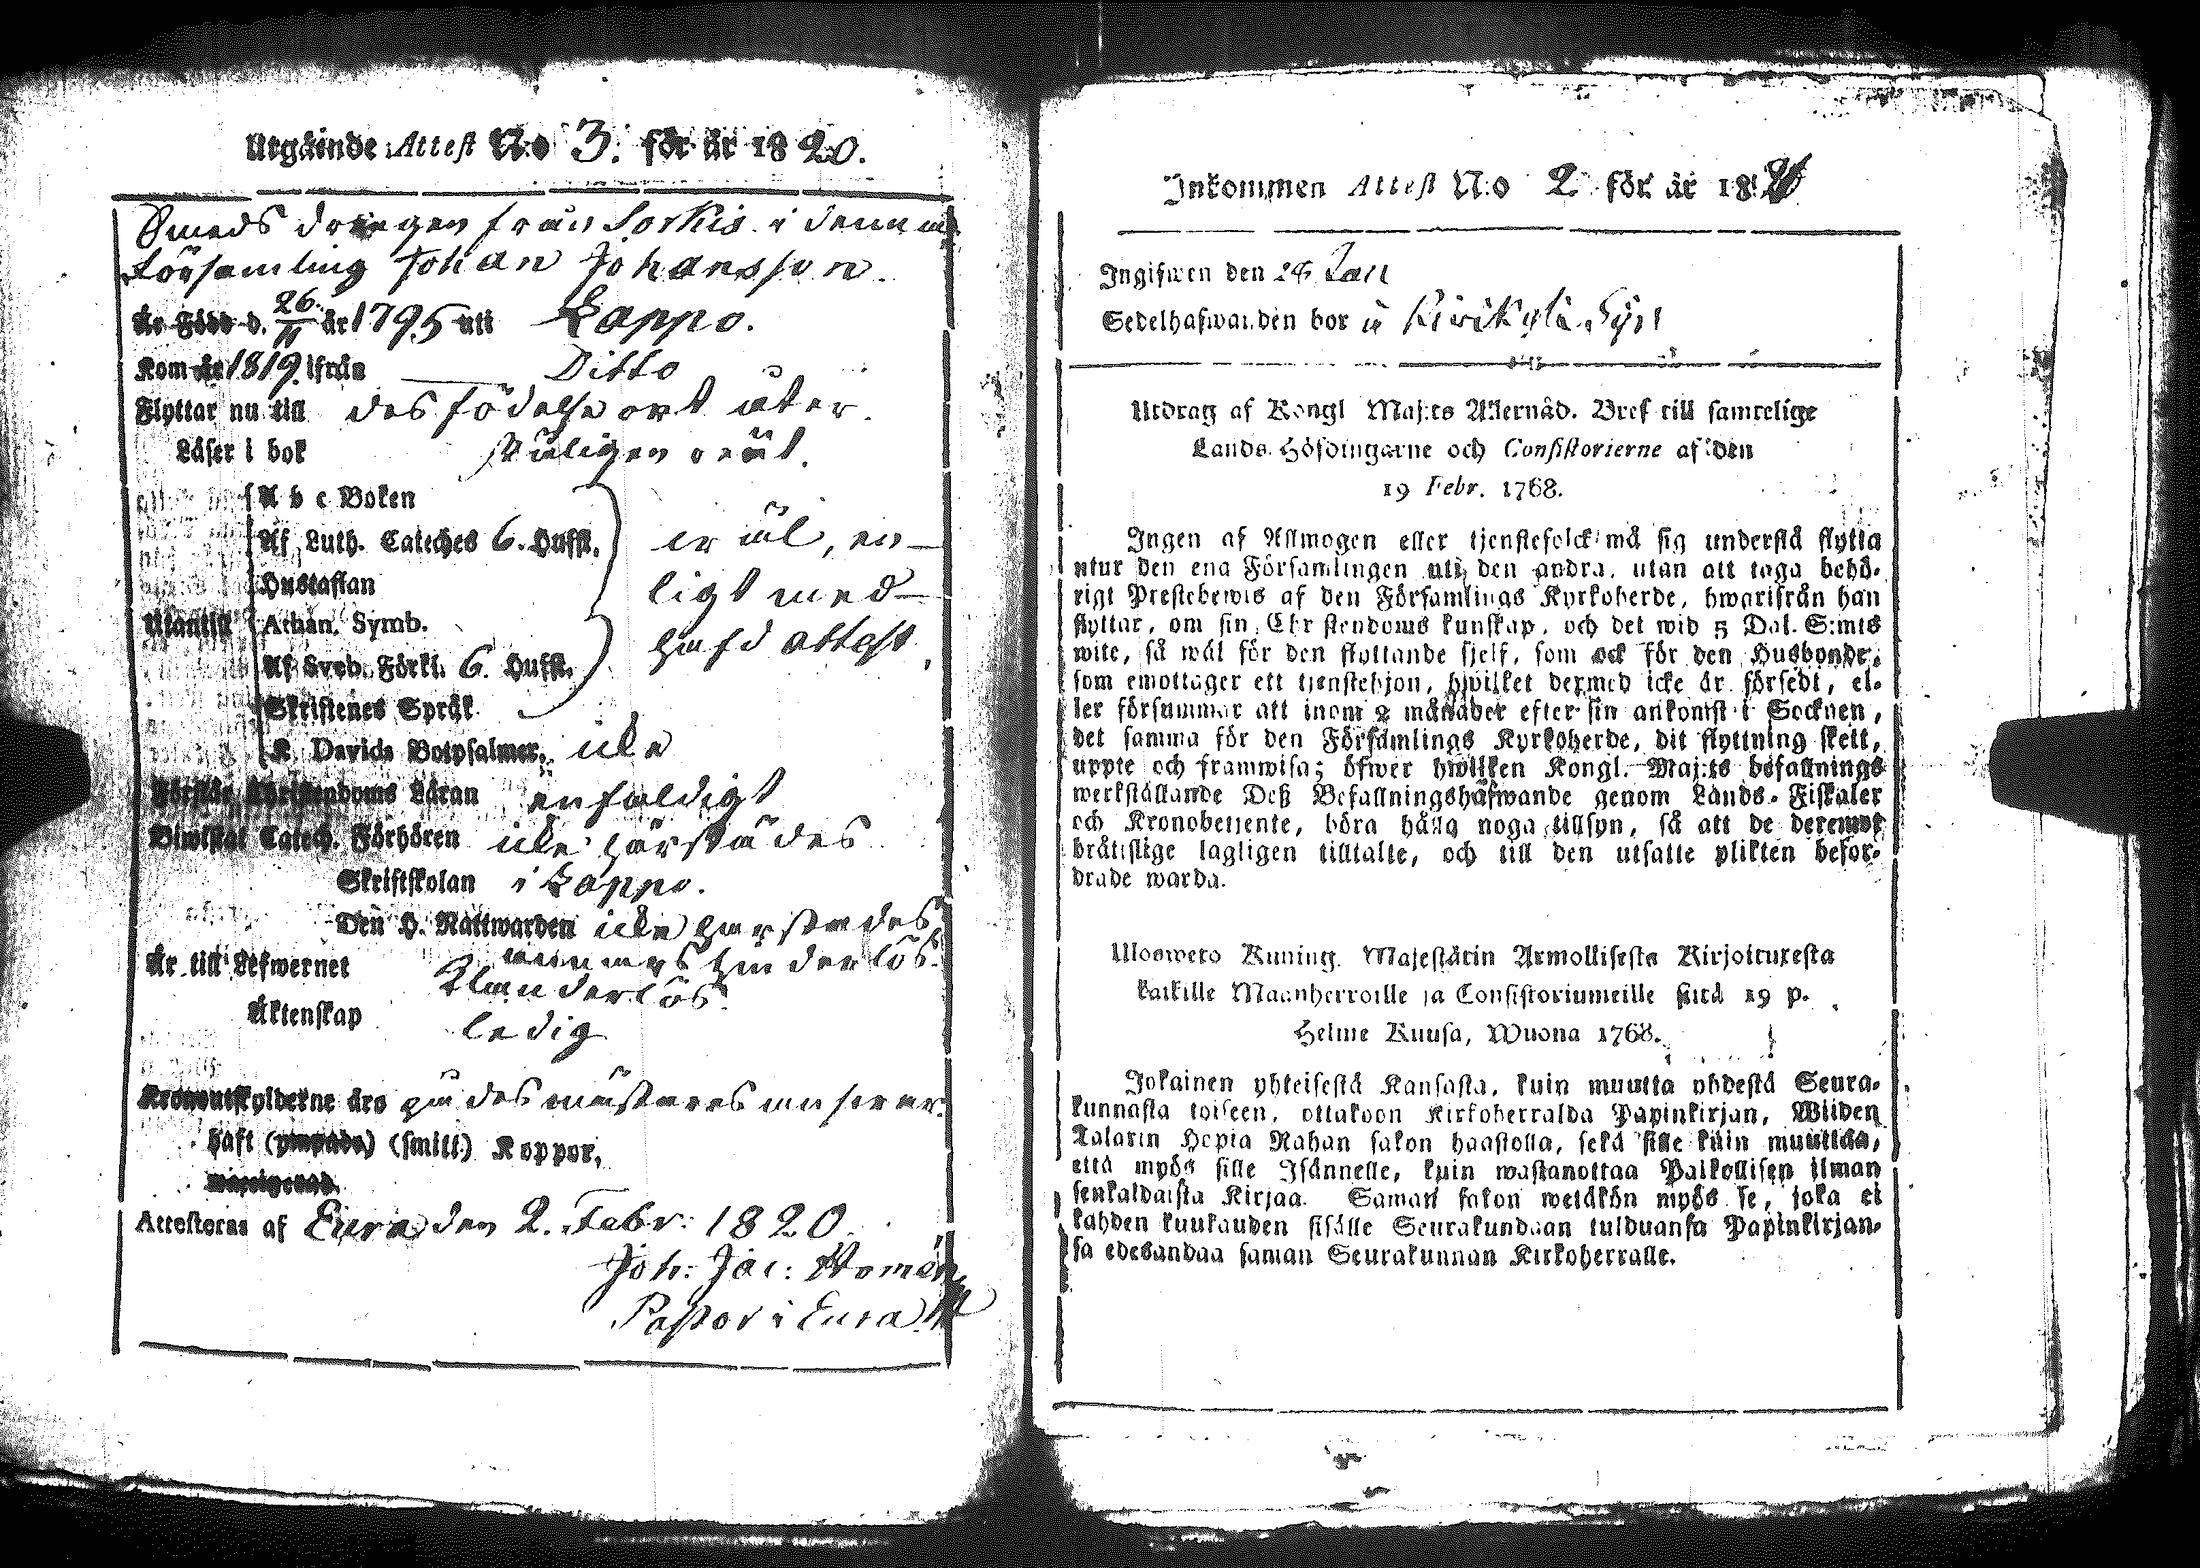 Utgående Attest N:o 3. för år 1820.
Smeds drängen från Sorkis i denna
Församling Johan Johansson.
Är Född d. 26/11 år 1795 uti Lappo.
Kom år 1819 ifrån Ditto
Flyttar nu till des födelse ort åter.
Läser i bok skäligen rent.
A b c Boken
Af Luth. Cateches 6. Hufst. er ål, en-
Hustaflan ligt med-
Utantill Athan. Symb.
hafd attest
Af Sveb. Förkl. 6. Hufst.
Skriftenes Språk
K. Davids Botpsalmer, icke
Förstår Christendoms Läran enfaldigt
Biwistat Catech. Förhören icke härstädes
Skriftskolan i Lappo.
Den H. Nattwarden icke härstädes
Är till Lefwernet
Klanderlös
Äktenskap ledig
Kronoutskylderne äro på des mästares
haft (ympade) (smitt) Koppor,
Attesteras af Eura den 2. Febr: 1820.
Joh: Jac: Homén
Pastor i Eura
Inkommen Attest N:o 2 för år 182
Ingifwen den 28 Jan
Sedelhafwanden bor i Kirikylä Byn
Utdrag af Kongl Maj:ts Allernåd. Bref till samtelige
Lands Höfdingarne och Consistorierne af den
19 Febr. 1768.
Ingen af Allmogen eller tjenstefolck må sig understå flytta
utur den ena Församlingen uti den andra, utan att taga behö-
rigt Prestebewis af den Församlings Kyrkoherde, hwarifrån han
flyttar, om sin Christendoms kunskap, och det wid 5 Dal. S:mts
wite, så wäl för den flyttande sjelf, som ock för den Husbonde,
som emottager ett tjenstehjon, hwilket dermed icke är försedt, el-
ler försummar att inom 2 månader efter sin ankomst i Socknen,
det samma för den Församlings Kyrkoherde, dit flyttning skett,
uppte och framwisa; öfwer hwilken Kongl. Maj:ts befallnings
werkställande Deß Befallningshafwande genom Lands-Fiskaler
och Kronobetjente, böra hålla noga tillsyn, så att de deremot
bråtslige lagligen tilltalte, och till den utsatte plikten befor-
drade warda.
Uloswero Kuning. Majestätin Armollisesta Kirjoituxesta
kaikille Maanherroille ja Consistoriumeille siitä 19 p.
Helme Kuusa, Wuona 1768.
Jokainen yhteisestä Kansasta, kuin muutta yhdestä Seura-
kunnasta toiseen, ottakoon Kirkoherralda Papinkirjan, Wiiden
Talarin Hopia Rahan sakon haastolla, sekä sille kuin muuttaa,
että myös sille Isännelle, kuin wastanottaa Palkollisen ilman
senkaldaista Kirjaa. Saman sakon wetäkön myös se, joka ei
kahden kuukauden sisälle Seurakundaan tulduansa Papinkirjan-
sa edesandaa saman Seurakunnan Kirkoherralle.